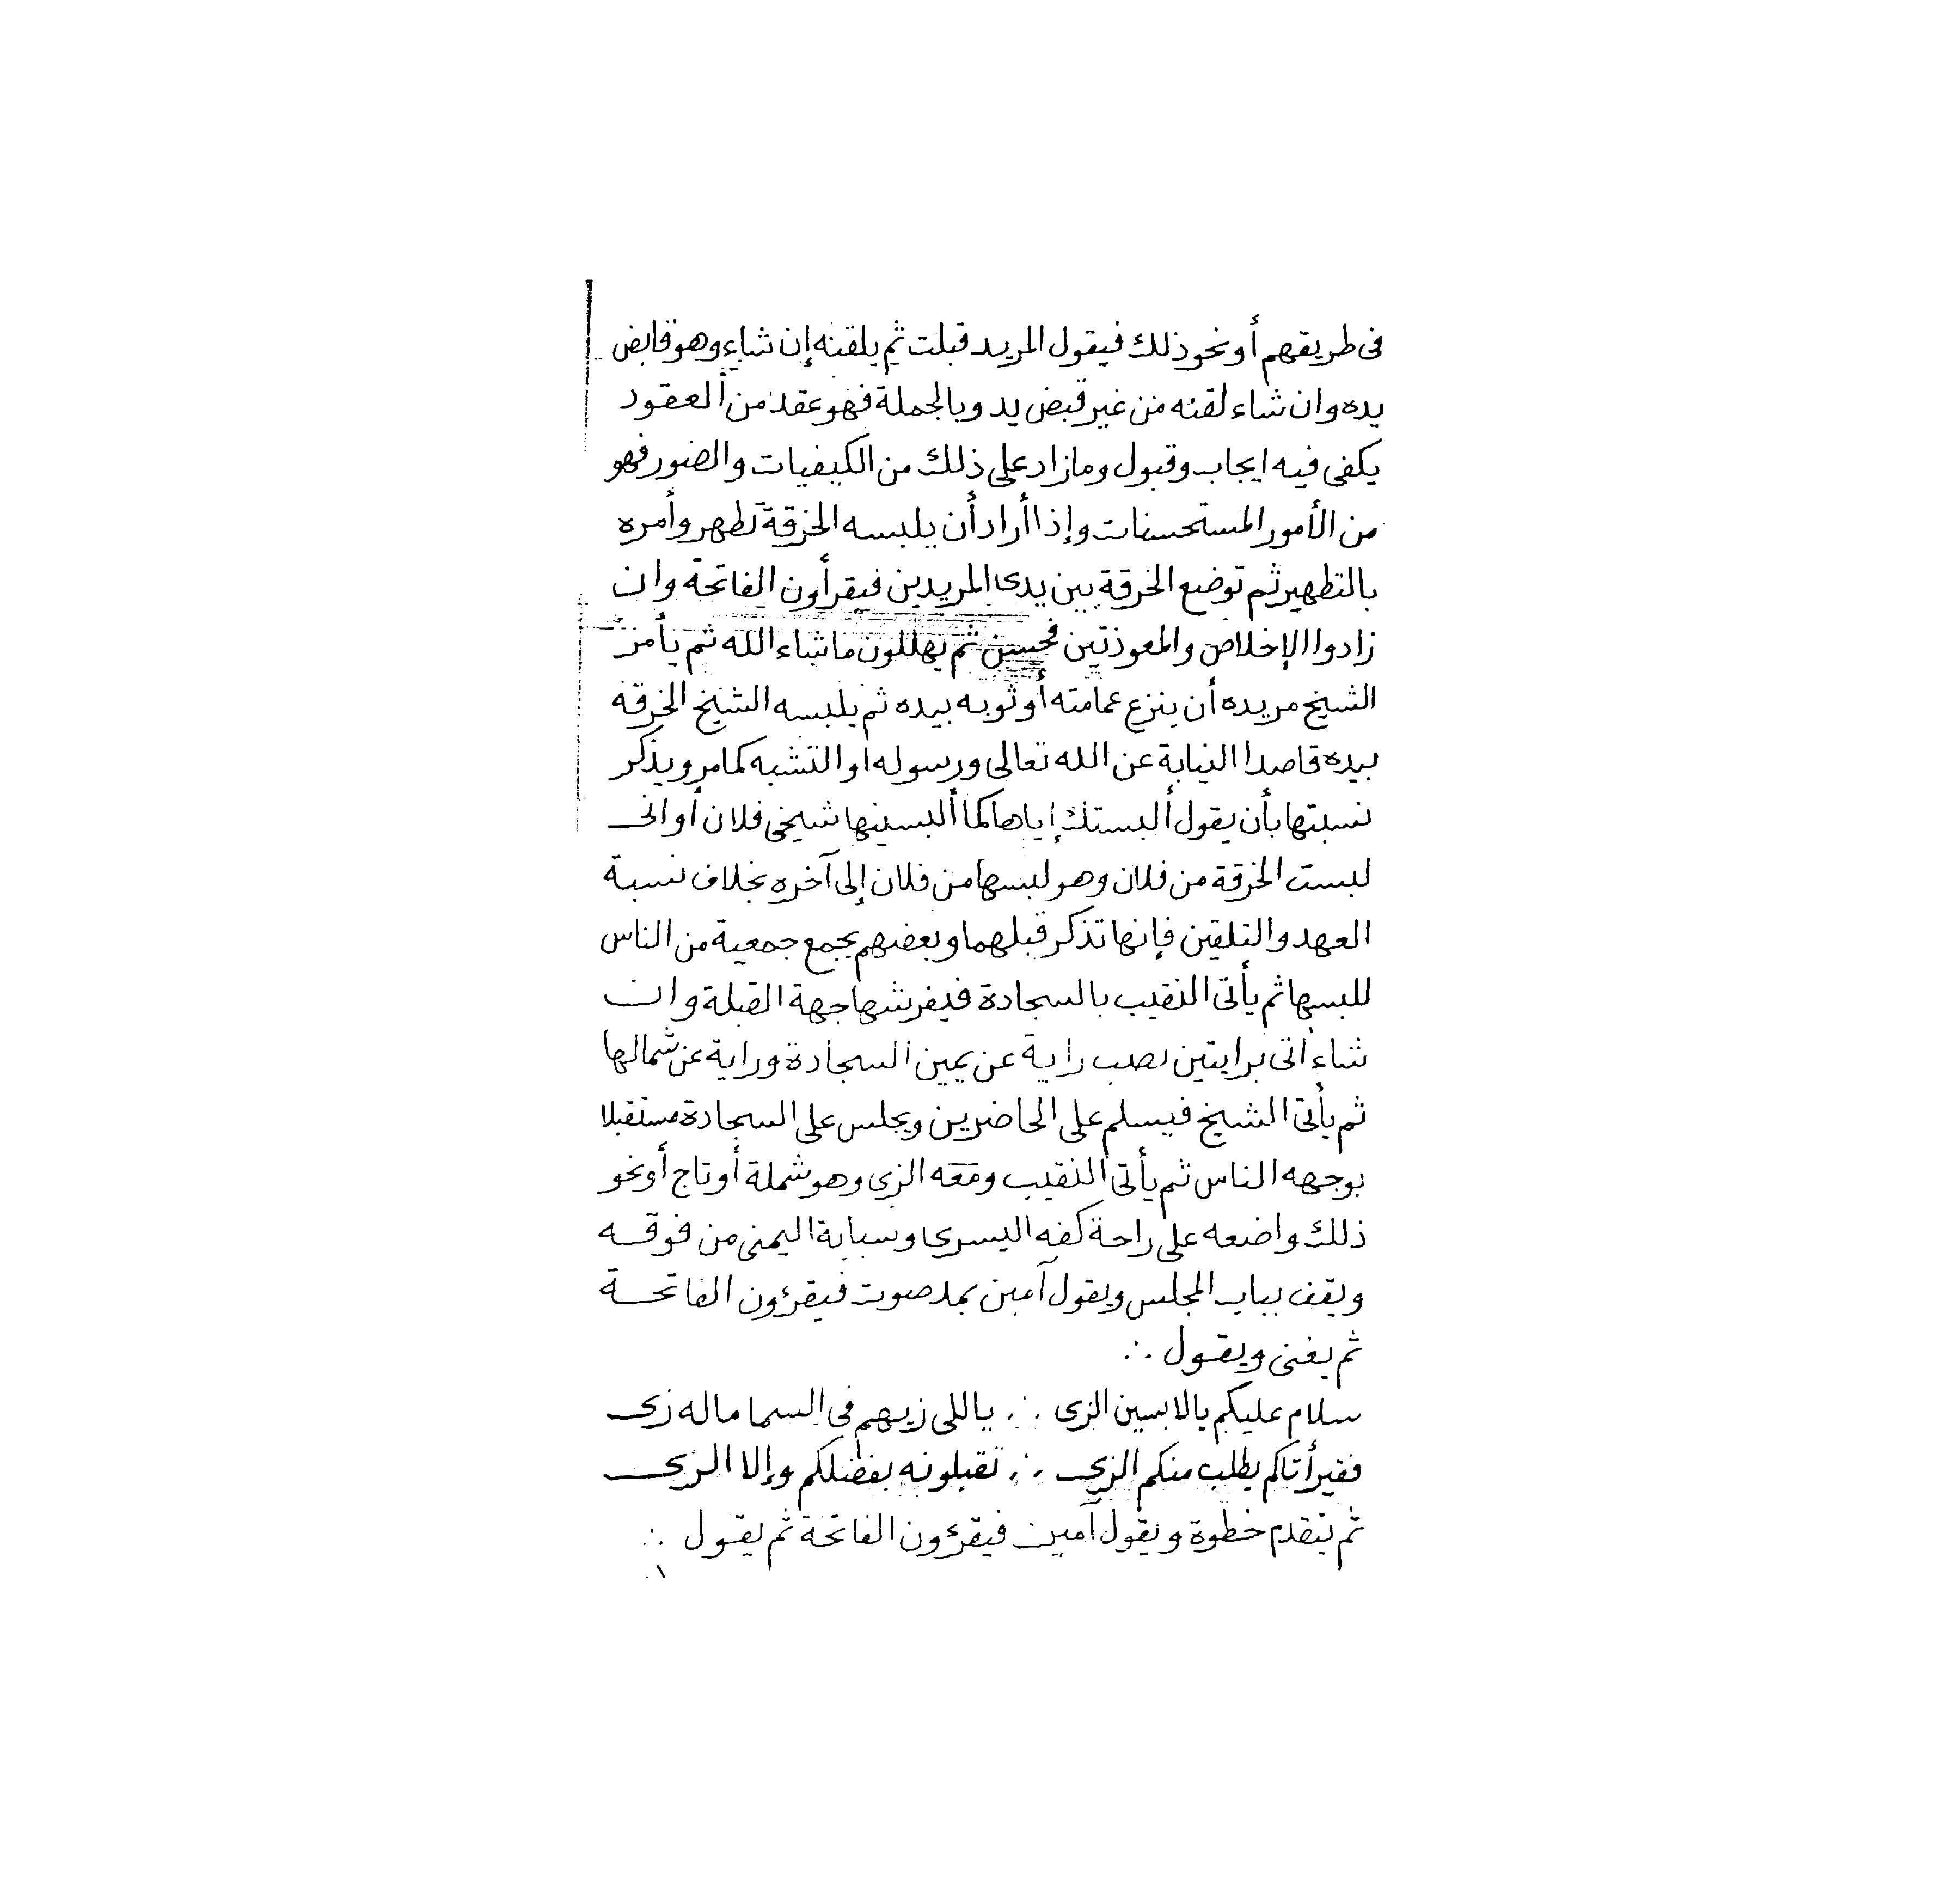 فى طريقهم أو نحو ذلك فيقول المريد قبلت ثم يلقنه إن شاء وهو قابض
يده وان شاء لقنه من غير قبض يد وبالجملة فهو عقد من العقود
يكفى فيه ايجاب وقبول وما زاد على ذلك من الكيفيات والصور فهو
من الأمور المستحسنات وإذا أراد أن يلبسه الخرقة تطهر وأمره
بالتطهير ثم توضع الخرقة بين يدى المريدين فيقرأون الفاتحة وان
زادوا الإخلاص والمعوذتين فحسن ثم يهللون ما شاء الله ثم يأمر
الشيخ مريده أن ينزع عمامته أو ثوبه بيده ثم يلبسه الشيخ الخرقه
بيده قاصدا النيابة عن الله تعالى ورسوله او التشبه كما مر ويذكر
نسبتها بأن يقول ألبستك إياها كما ألبسنيها شيخى فلان أو انى
لبست الخرقة من فلان وهو لبسها من فلان إلى آخره بخلاف نسبة
العهد والتلقين فإنها تذكر قبلهما وبعضهم يجمع جمعية من الناس
للبسها ثم يأتى النقيب بالسجادة فيفرشها جهة القبلة وان
شاء اتى برايتين نصب راية عن يمين السجادة وراية عن شمالها
ثم يأتى الشيخ فيسلم على الحاضرين ويجلس على السجادة مستقبلا
بوجهه الناس ثم يأتى النقيب ومعه الزى وهو شملة أو تاج أو نحو
ذلك واضعه على راحة كفه اليسرى وسبابة اليمنى من فوقه
ويقف بباب المجلس ويقول آمين بمد صوت فيقرءون الفاتحة
ثم يغنى ويقول ∴
سلام عليكم يالابسين الزى ∴ ياللى زيهم فى السما ماله زى
فقير أتاكم يطلب منكم الزى ∴ تقبلونه بفضلكم وإلا الزى
ثم يتقدم خطوة ويقول آمين فيقرءون الفاتحة ثم يقول ∴